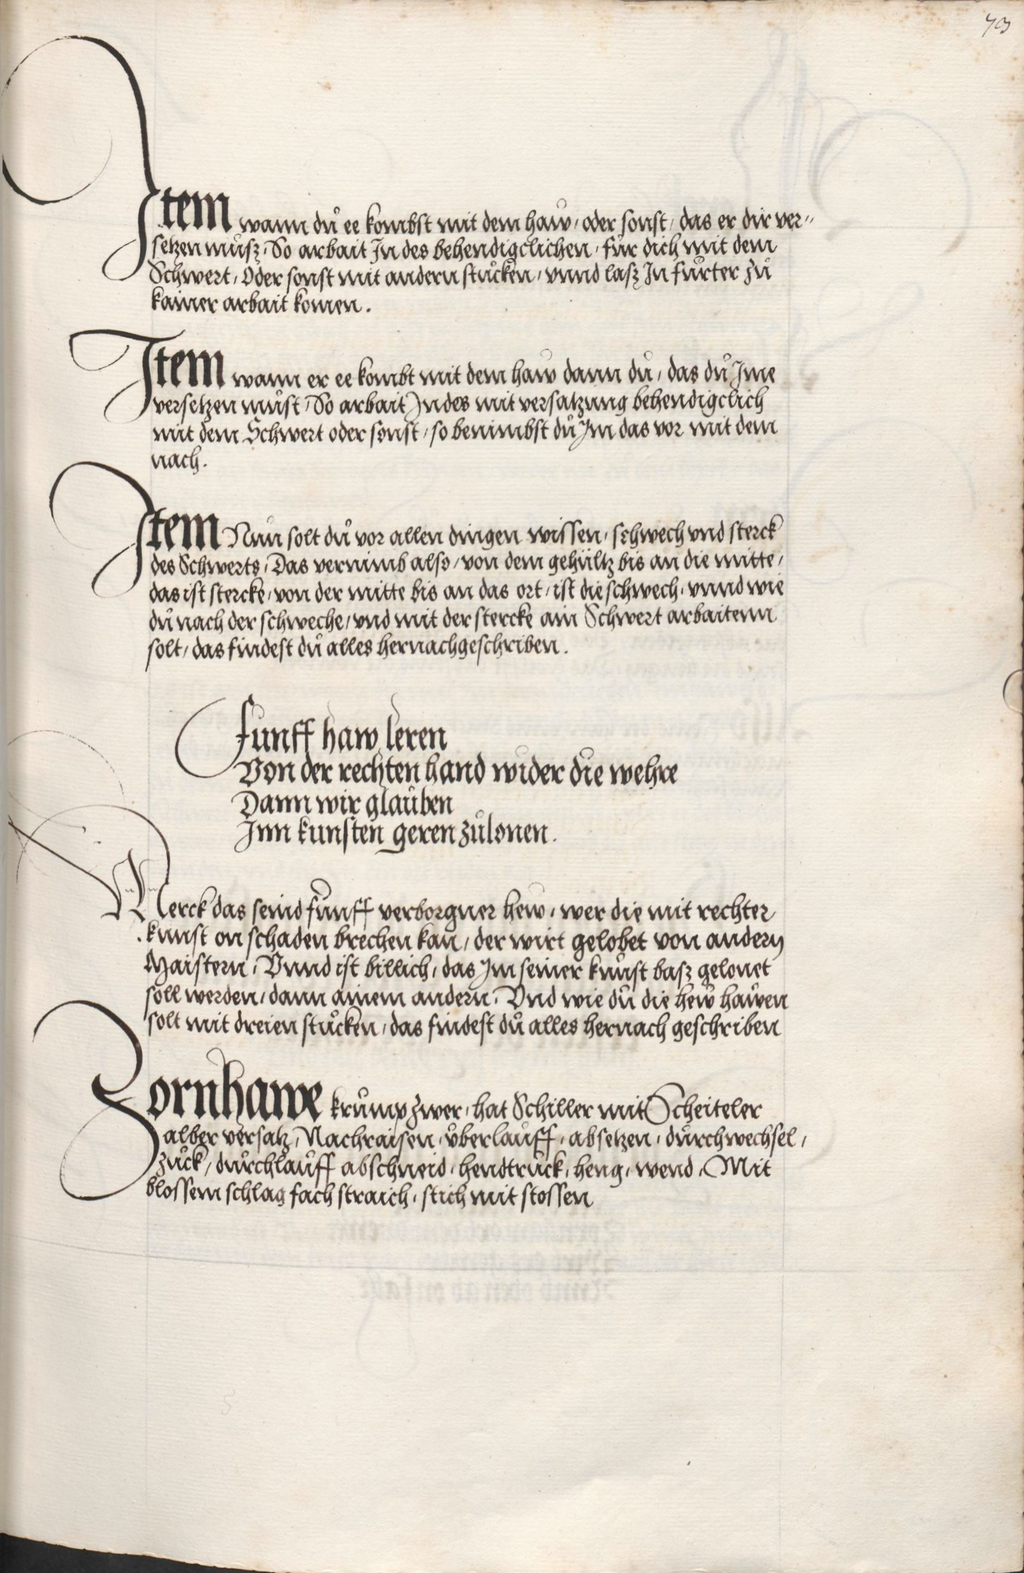 73
Item wann dů ee kombst mit dem haw / oder sonst / das er dir ver-
setzen můsz / So arbait In des behendigclichen / für dich mit dem
Schwert / Oder sonst mit andern stůcken / vnnd lasz In fůrter zů
kainer arbait komen.
Item wann er ee kombt mit dem haw dann dů / das dů Ime
versetzen můst / So arbait Indes mit versatzung behendigclich
mit dem Schwert oder sonst / so benimbst dů Im das vor mit dem
nach.
Item Nůn solt dů vor allen dingen wissen / schwech vnd sterck
des Schwerts / Das vernimb also / von dem gehůltz bis an die mitte /
das ist stercke / von der mitte bis an das ort / ist die schwech / vnnd wie
dů nach der schweche / vnd mit der stercke am Schwert arbaitenn
solt / das findest dů alles hernachgeschriben.
Funff haw leren
Von der rechten hand wider die wehre
Dann wir glaůben
Inn kunsten geren zůlonen.
Merck das seind fůnff verborgner hew / wer die mit rechter
kůnst on schaden brechen kan / der wirt gelobet von andern
Maistern / Vnnd ist billich / das Im seiner kůnst basz gelonet
soll werden / dann ainem andern / Vnd wie dů die hew haůen
solt mit dreien stůcken / das findest dů alles hernach geschriben
Zornhawe krůmp zwer / hat Schiller mit Scheiteler
alber versatz / Nachraisen / ůberlaůff / absetzen / důrchwechsel /
zůck / důrchlaůff abschneid / hendtrůck / heng / wend / Mit
blossem schlag fach straich / stich mit stossen